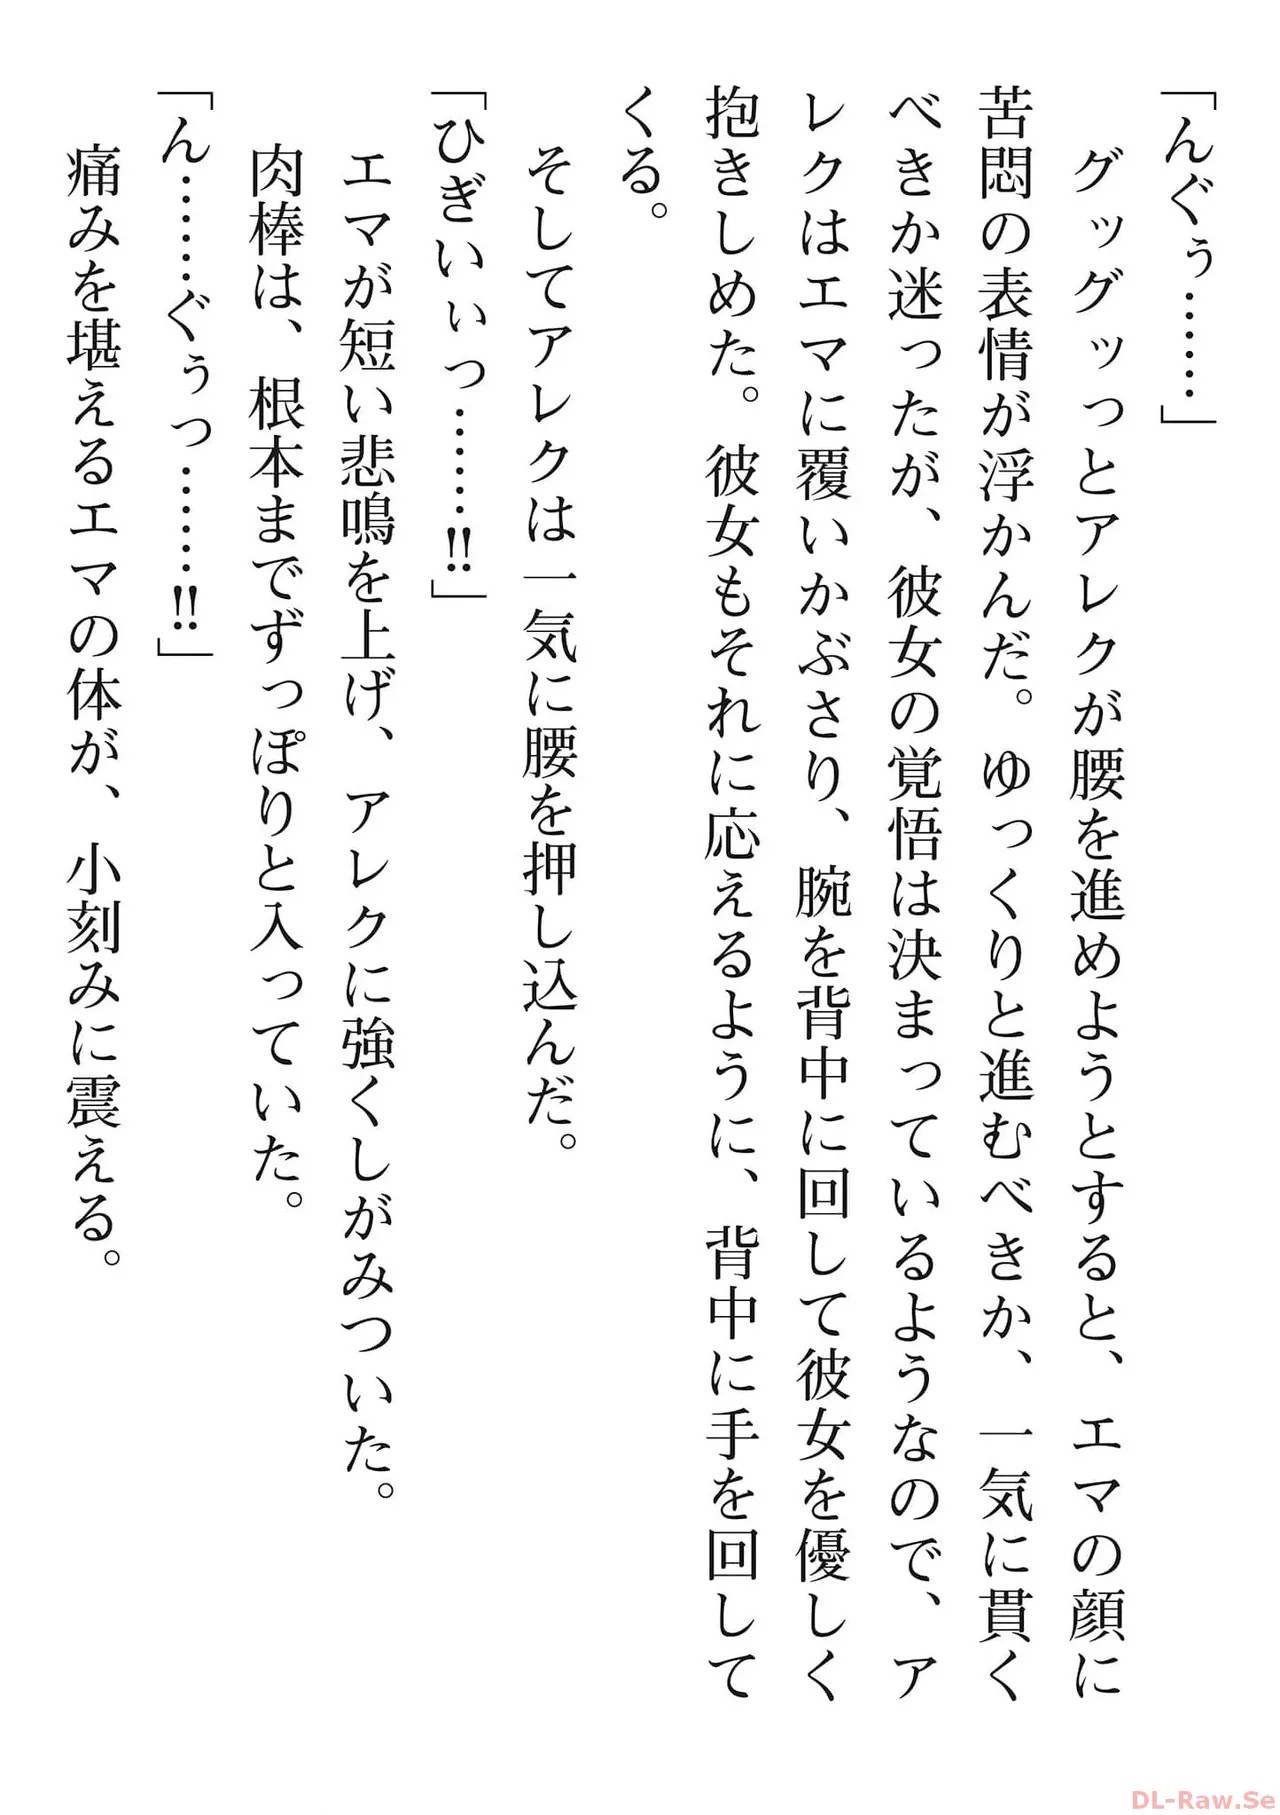 「んぐぅ……」
グッグッっとアレクが腰を進めようとすると、エマの顔に
苦悶の表情が浮かんだ。ゆっくりと進むべきか、一気に貫く
べきか迷ったが、彼女の覚悟は決まっているようなので、ア
レクはエマに覆いかぶさり、腕を背中に回して彼女を優しく
抱きしめた。彼女もそれに応えるように、背中に手を回して
くる。
そしてアレクは一気に腰を押し込んだ。
「ひぎいぃっ……‼」
エマが短い悲鳴を上げ、アレクに強くしがみついた。
肉棒は、根本までずっぽりと入っていた。
「ん……ぐぅっ……‼」
痛みを堪えるエマの体が、小刻みに震える。
DL-Raw.Se